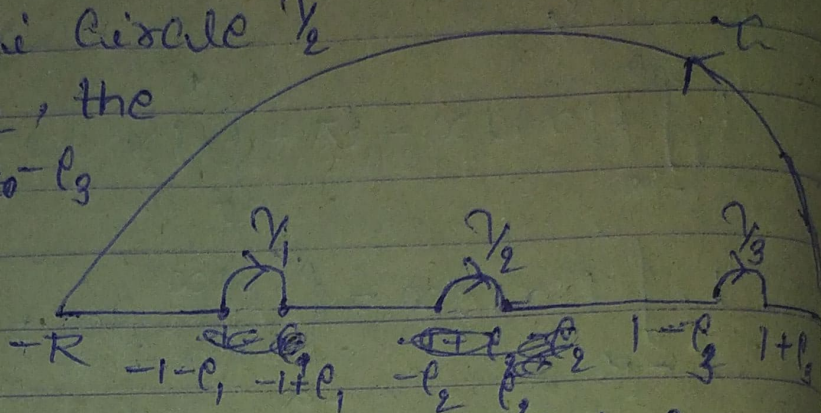 i Circle γ2
, the
-ρ3
γ1 γ2 γ3
-R -1-ρ1 -1+ρ1 -ρ2 ρ2 1-ρ3 1+ρ3